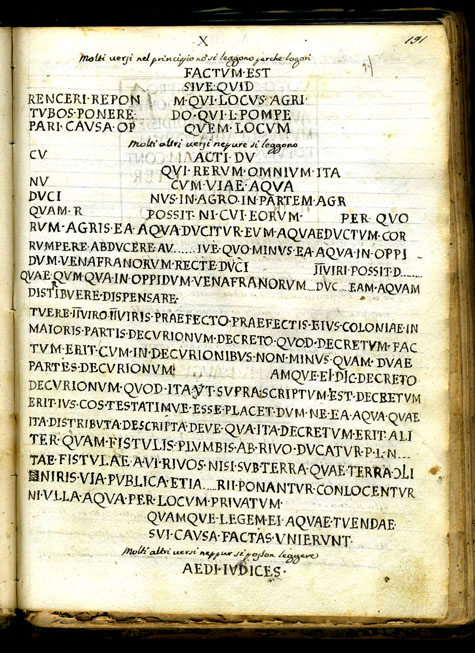 X
191
Molti versi nel principio no si leggono perche logori
FACTVM·EST
SIVE·QVID
RENCERI·REPON M·QVI·LOCVS·AGRI·
TVBOS·PONERE· DO·QVI·L·POMPE
PARI·CAVSA·OP QVEM·LOCVM
Molti altri versi nepure si leggono
CV ACTI·DV
QVI·RERVM·OMNIVM·ITA
NV CVM·VIAE·AQVA
DVCI NVS·IN·AGRO·IN·PARTEM·AGR
QVAM·R POSSIT·NI·CVI·EORVM· PER·QVO
RVM·AGRIS·EA·AQVA·DVCITVR·EVM·AQVAEDVCTVM·COR
RVMPERE·ABDVCERE·AV......IVE·QVO·MINVS·EA·AQVA·IN·OPPI
DVM·VENAFRANORVM·RECTE·DVCI IIVIRI·POSSIT·D......
QVAE·QVM·QVA·IN·OPPIDVM·VENAFRANORVM...DVC...EAM·AQVAM
DISTIBVERE·DISPENSARE·
TVERE·IIVIRO·IIVIRIS·PRAEFECTO·PRAEFECTIS·EIVS·COLONIAE·IN
MAIORIS·PARTIS·DECVRIONVM·DECRETO·QVOD·DECRETVM·FAC
TVM·ERIT·CVM·IN·DECVRIONIBVS·NON·MINVS·QVAM·DVAE
PARTES·DECVRIONVM AMQVE·EI·DIC·DECRETO
DECVRIONVM·QVOD·ITA·VT·SVPRA·SCRIPTVM·EST·DECRETVM
ERIT·IVS·COSTESTATIMVE·ESSE·PLACET·DVM·NE·EA·AQVA·QVAE
ITA·DISTRIBVTA·DESCRIPTA·DEVE·QVA·ITA·DECRETVM·ERIT·ALI
TER·QVAM·FISTVLIS·PLVMBIS·AB·RIVO·DVCATVR·P·L·N...
TAE·FISTVLAE·AVI·RIVOS·NISI·SVB·TERRA·QVAE·TERRA
NIRIS·VIA·PVBLICA·ETIA....RII·PONANTVR·CONLOCENTVR
NI·VLLA·AQVA·PER·LOCVM·PRIVATVM·
QVAMQVE·LEGEM·EI·AQVAE·TVENDAE·
SVI·CAVSA·FACTAS·VNIERVNT·
Molti altri versi neppur si posson leggere
AEDI·IVDICES·